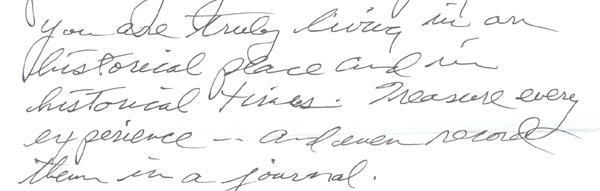 You are truly living in an
historical place and in
historical times. Treasure every
experience -- and even record
them in a journal.